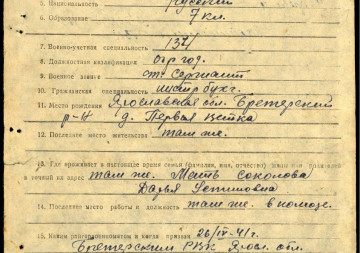 5. Национальность Русский
6. Образование 7 кл.
7. Военно-учетная специальность 134
8. Должностная квалификация
9. Военное звание ст. Сержант
10. Гражданская специальность
11. Место рождения Ярославская обл. Бретерский
р-н д. Первая
12. Последнее место жительства там же.
13. Где проживает в настоящее время семья (фамилия, имя, отчество)
и точный их адрес там же. Мать Соколова
Дарья Устиновна
14. Последнее место работы и должность там же. в
15. Каким райвоенкоматом и когда призван 26/IV-41 г.
Бретерским РВК Яросл. обл.